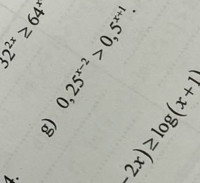 32²ˣ ≥ 64ˣ
g) 0,25ˣ⁻² > 0,5ˣ⁺¹.
2x) ≥ log(x+1)
4.